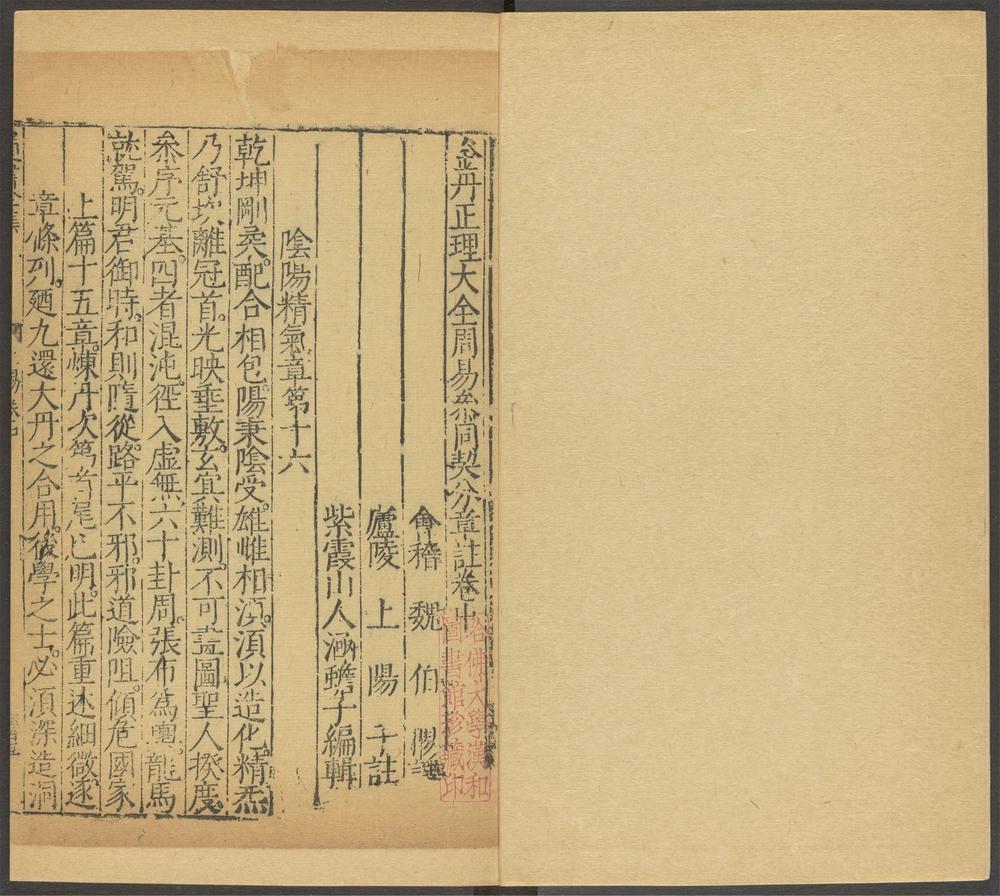 金丹正理大全周易參同契分章註卷中
會稽 魏 伯 陽 譔
廬陵 上 陽 子 註
紫霞山人涵蟾子編輯
陰陽精氣章第十六
乾坤剛柔。配合相包。陽秉陰受。雄雌相須。須以造化。精炁
乃舒。坎離冠首。光映垂敷。玄冥難測。不可畫圖。聖人揆度。
叅序元基。四者混沌。徑入虛無。六十卦周。張布爲輿。龍馬
就駕。明君御時。和則隨從。路平不邪。邪道險阻。傾危國家
上篇十五章。煉丹次第。首尾已明。此篇重述細微。逐
章條列。廼九還大丹之合用。後學之士。必須深造洞
哈佛大學漢和
圖書館珍藏印